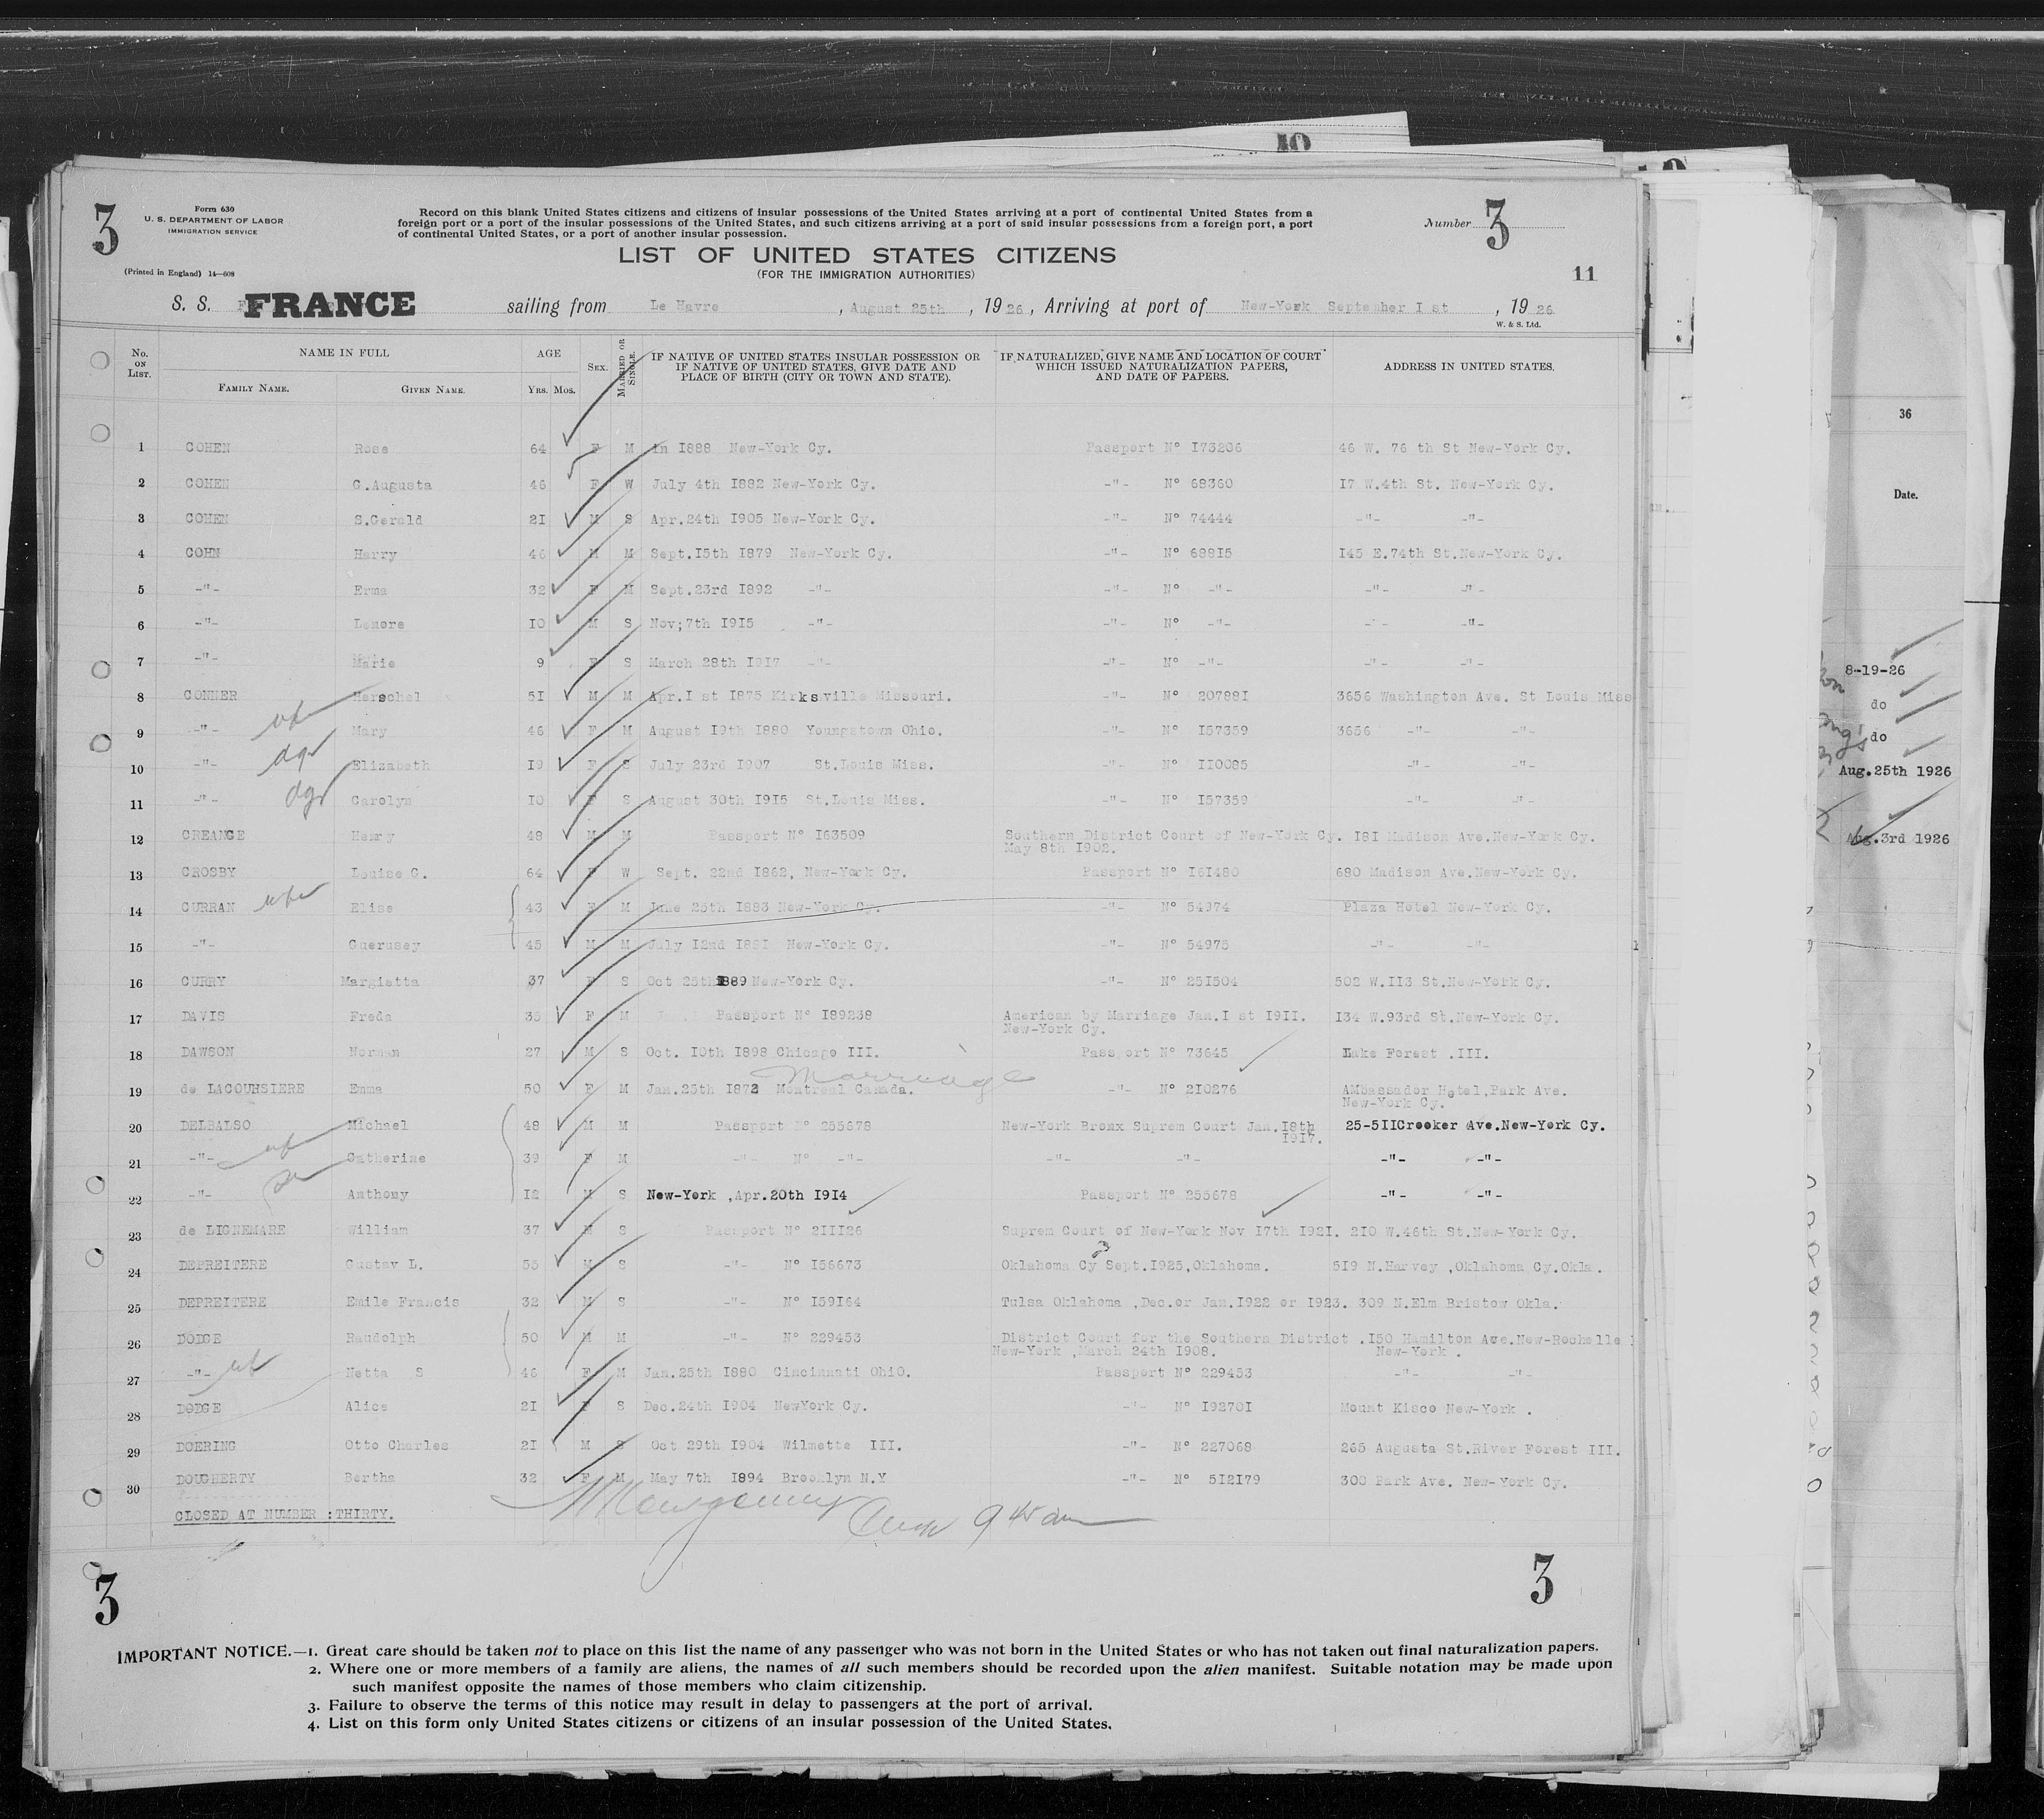 10
3
Form 630
U. S. DEPARTMENT OF LABOR
IMMIGRATION SERVICE
(Printed in England) 14—608
Record on this blank United States citizens and citizens of insular possessions of the United States arriving at a port of continental United States from a
foreign port or a port of the insular possessions of the United States, and such citizens arriving at a port of said insular possessions from a foreign port, a port
of continental United States, or a port of another insular possession.
Number 3
LIST OF UNITED STATES CITIZENS
(FOR THE IMMIGRATION AUTHORITIES)
11
S. S. FRANCE sailing from Le Havre , August 25th , 1926 , Arriving at port of New-York September I st , 1926
W. & S. Ltd.
No. ON LIST. NAME IN FULL AGE SEX. MARRIED OR SINGLE. IF NATIVE OF UNITED STATES INSULAR POSSESSION OR IF NATIVE OF UNITED STATES, GIVE DATE AND PLACE OF BIRTH (CITY OR TOWN AND STATE). IF NATURALIZED, GIVE NAME AND LOCATION OF COURT WHICH ISSUED NATURALIZATION PAPERS, AND DATE OF PAPERS. ADDRESS IN UNITED STATES.
FAMILY NAME. GIVEN NAME. YRS. MOS.
1 COHEN Rose 64 F M in I888 New-York Cy. Passport N° I73206 46 W. 76 th St New-York Cy.
2 COHEN C.Augusta 46 F W July 4th I882 New-York Cy. -"- N° 69360 I7 W.4th St. New-York Cy.
3 COHEN S.Gerald 2I M S Apr.24th I905 New-York Cy. -"- N° 74444 -"- -"-
4 COHN Harry 46 M M Sept.I5th I879 New-York Cy. -"- N° 688I5 I45 E.74th St.New-York Cy.
5 -"- Erma 32 F M Sept.23rd I892 -"- -"- N° -"- -"- -"-
6 -"- Lenore I0 M S Nov;7th I9I5 -"- -"- N° -"- -"- -"-
7 -"- Marie 9 F S March 28th I9I7 -"- -"- N° -"- -"- -"-
8 CONNER Herschel 5I M M Apr.I st I875 Kirksville Missouri. -"- N° 20788I 3656 Washington Ave. St Louis Miss
9 -"- wf Mary 46 F M August I9th I880 Youngstown Ohio. -"- N° I57359 3656 -"- -"-
10 -"- dgr Elizabeth I9 F S July 23rd I907 St.Louis Miss. -"- N° II0085 -"- -"-
11 -"- dgr Carolyn I0 F S August 30th I9I5 St.Louis Miss. -"- N° I57359 -"- -"-
12 CREANGE Henry 49 M M Passport N° I63509 Southern District Court of New-York Cy. I8I Madison Ave.New-York Cy.
May 8th I902.
13 CROSBY Louise C. 64 F W Sept. 22nd I862, New-York Cy. Passport N° I6I480 680 Madison Ave.New-York Cy.
14 CURRAN wfe Elise 43 F M June 25th I883 New-York Cy. -"- N° 54974 Plaza Hotel New-York Cy.
15 -"- Guernsey 45 M M July I2nd I88I New-York Cy. -"- N° 54975 -"- -"-
16 CURRY Margietta 37 F S Oct 25th I889 New-York Cy. -"- N° 25I504 502 W.II3 St.New-York Cy.
17 DAVIS Freda 35 F M Passport N° I89238 American by Marriage Jan.I st I9II. I34 W.93rd St.New-York Cy.
New-York Cy.
18 DAWSON Norman 27 M S Oct. I0th I898 Chicago III. Passport N° 73645 Lake Forest .III.
Marriage
19 de LACOURSIERE Emma 50 F M Jan.25th I872 Montreal Canada. -"- N° 2I0276 AMbassador Hotel,Park Ave.
New-York Cy.
20 DELBALSO Michael 48 M M Passport N° 255678 New-York Bronx Suprem Court Jan.I8th 25-5IICrooker Ave.New-York Cy.
I9I7.
21 -"- wf Catherine 39 F M -"- N° -"- -"- -"- -"- -"-
22 -"- Anthony I2 M S New-York ,Apr.20th I9I4 Passport N° 255678 -"- -"-
23 de LIGNEMARE William 37 M S Passport N° 2III26 Suprem Court of New-York Nov I7th I92I. 2I0 W.46th St.New-York Cy.
24 DEPREITERE Gustav L. 55 M S -"- N° I56673 Oklahoma Cy Sept.I925,Oklahoma. 5I9 N.Harvey ,Oklahoma Cy.Okla.
25 DEPREITERE Emile Francis 32 M S -"- N° I59I64 Tulsa Oklahoma ,Dec.or Jan.I922 or I923. 309 N.Elm Bristow Okla.
26 DODGE Raudolph 50 M M -"- N° 229453 District Court for the Southern District .I50 Hamilton Ave.New-Rochelle
New-York ,March 24th I908. New-York .
27 -"- wf Netta S 46 F M Jan.25th I880 Cincinnati Ohio. Passport N° 229453 -"- -"-
28 DODGE Alice 2I F S Dec.24th I904 NewYork Cy. -"- N° I9270I Mount Kisco New-York .
29 DOERING Otto Charles 2I M S Oct 29th I904 Wilmette III. -"- N° 227068 265 Augusta St.River Forest III.
30 DOUGHERTY Bertha 32 F M May 7th I894 Brooklyn N.Y -"- N° 5I2I79 300 Park Ave. New-York Cy.
CLOSED AT NUMBER :THIRTY.
Montgomery 9 45 am
3 3
IMPORTANT NOTICE.—1. Great care should be taken not to place on this list the name of any passenger who was not born in the United States or who has not taken out final naturalization papers.
2. Where one or more members of a family are aliens, the names of all such members should be recorded upon the alien manifest. Suitable notation may be made upon
such manifest opposite the names of those members who claim citizenship.
3. Failure to observe the terms of this notice may result in delay to passengers at the port of arrival.
4. List on this form only United States citizens or citizens of an insular possession of the United States.
36
Date.
8-19-26
do
do
Aug.25th 1926
Aug.3rd 1926